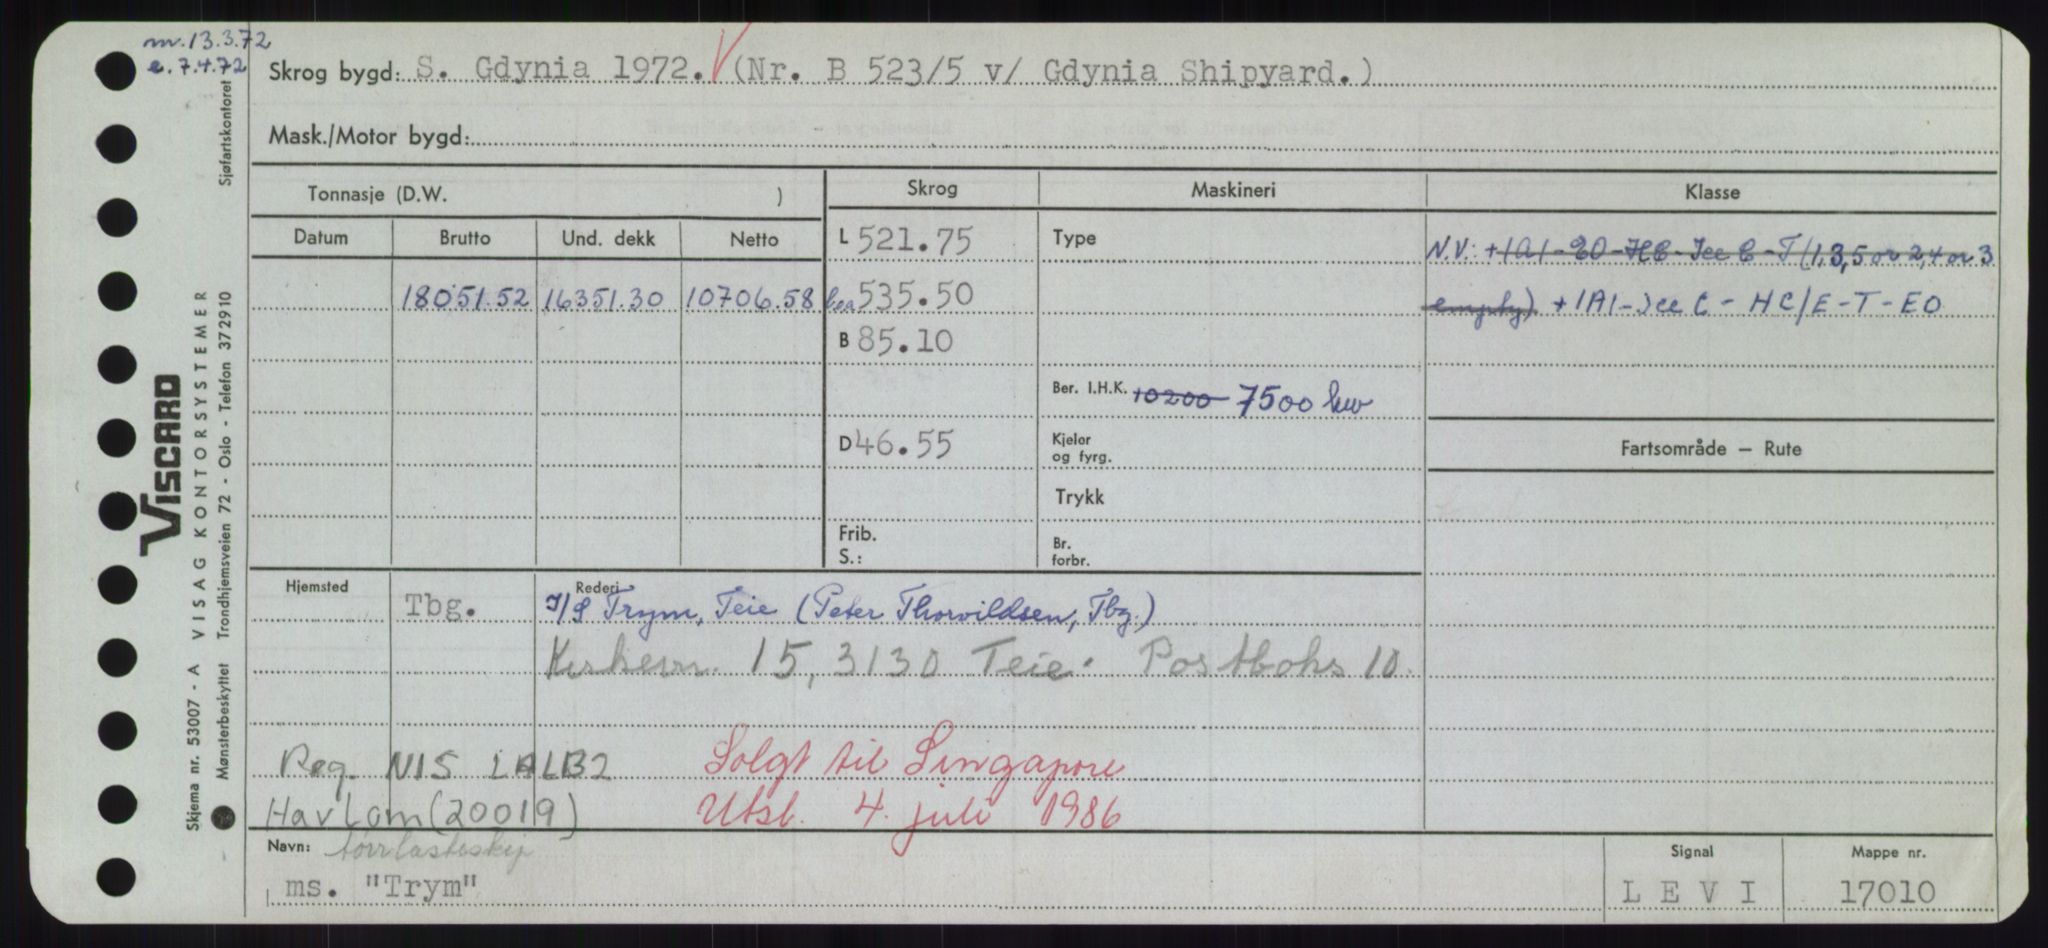 m. 13.3.72
e. 7.4.72
Skrog bygd: S. Gdynia 1972. (Nr. B 523/5 v/ Gdynia Shipyard.)
Mask./Motor bygd:
Tonnasje (D.W. )
Skrog
Maskineri
Klasse
Datum
Brutto
Und. dekk
Netto
L 521.75
Type
N.V: +1A1-EO-HC-Ice C-T (1,3,5 or 2,4 or 3
18051.52 16351.30 10706.58
535.50
empty) +1A1-Ice C - HC/E-T-EO
B 85.10
Ber. I.H.K. 10200 7500 kw
D 46.55
Kjeler
og fyrg.
Fartsområde — Rute
Trykk
Frib.
S.:
Br.
forbr.
Hjemsted
Tbg.
Rederi
I/S Trym, Teie (Peter Thorvildsen, Tbg.)
15, 3130 Teie. Postboks 10.
Reg. NIS LALB2
Solgt til Singapore
Havlom (20019)
Utsl. 4. juli 1986
Navn: tørrlasteskip
ms. "Trym"
Signal
LEVI
Mappe nr.
17010
Skjema nr. 53007 - A VISAG KONTORSYSTEMER
VISCARD
Mønsterbeskyttet Trondhjemsveien 72 - Oslo - Telefon 372910
Sjøfartskontoret